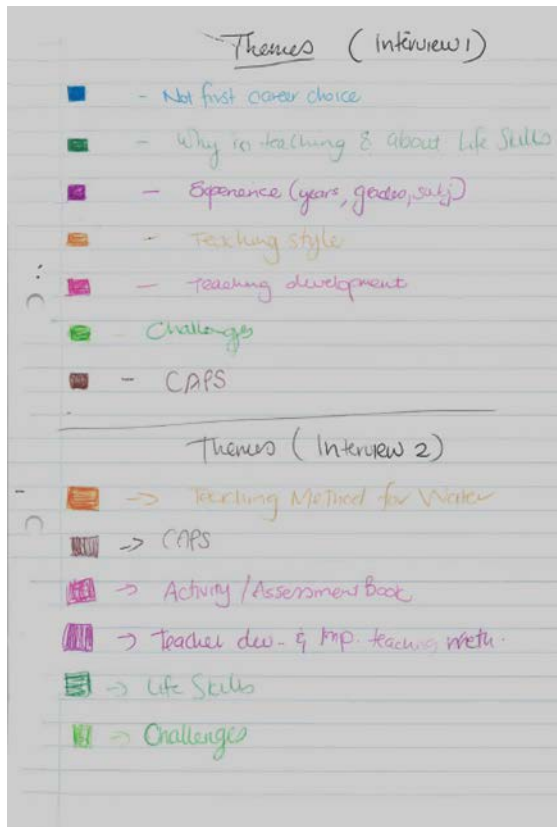 Themes (Interview 1)
- Not first career choice
- Why in teaching & about Life Skills
- Experience (years, grades, subj)
- Teaching style
- Teaching development
- Challenges
- CAPS
Themes (Interview 2)
-> Teaching Method for Water
-> CAPS
-> Activity / Assessment Book
-> Teacher dev. & Imp. teaching meth.
-> Life Skills
-> Challenges